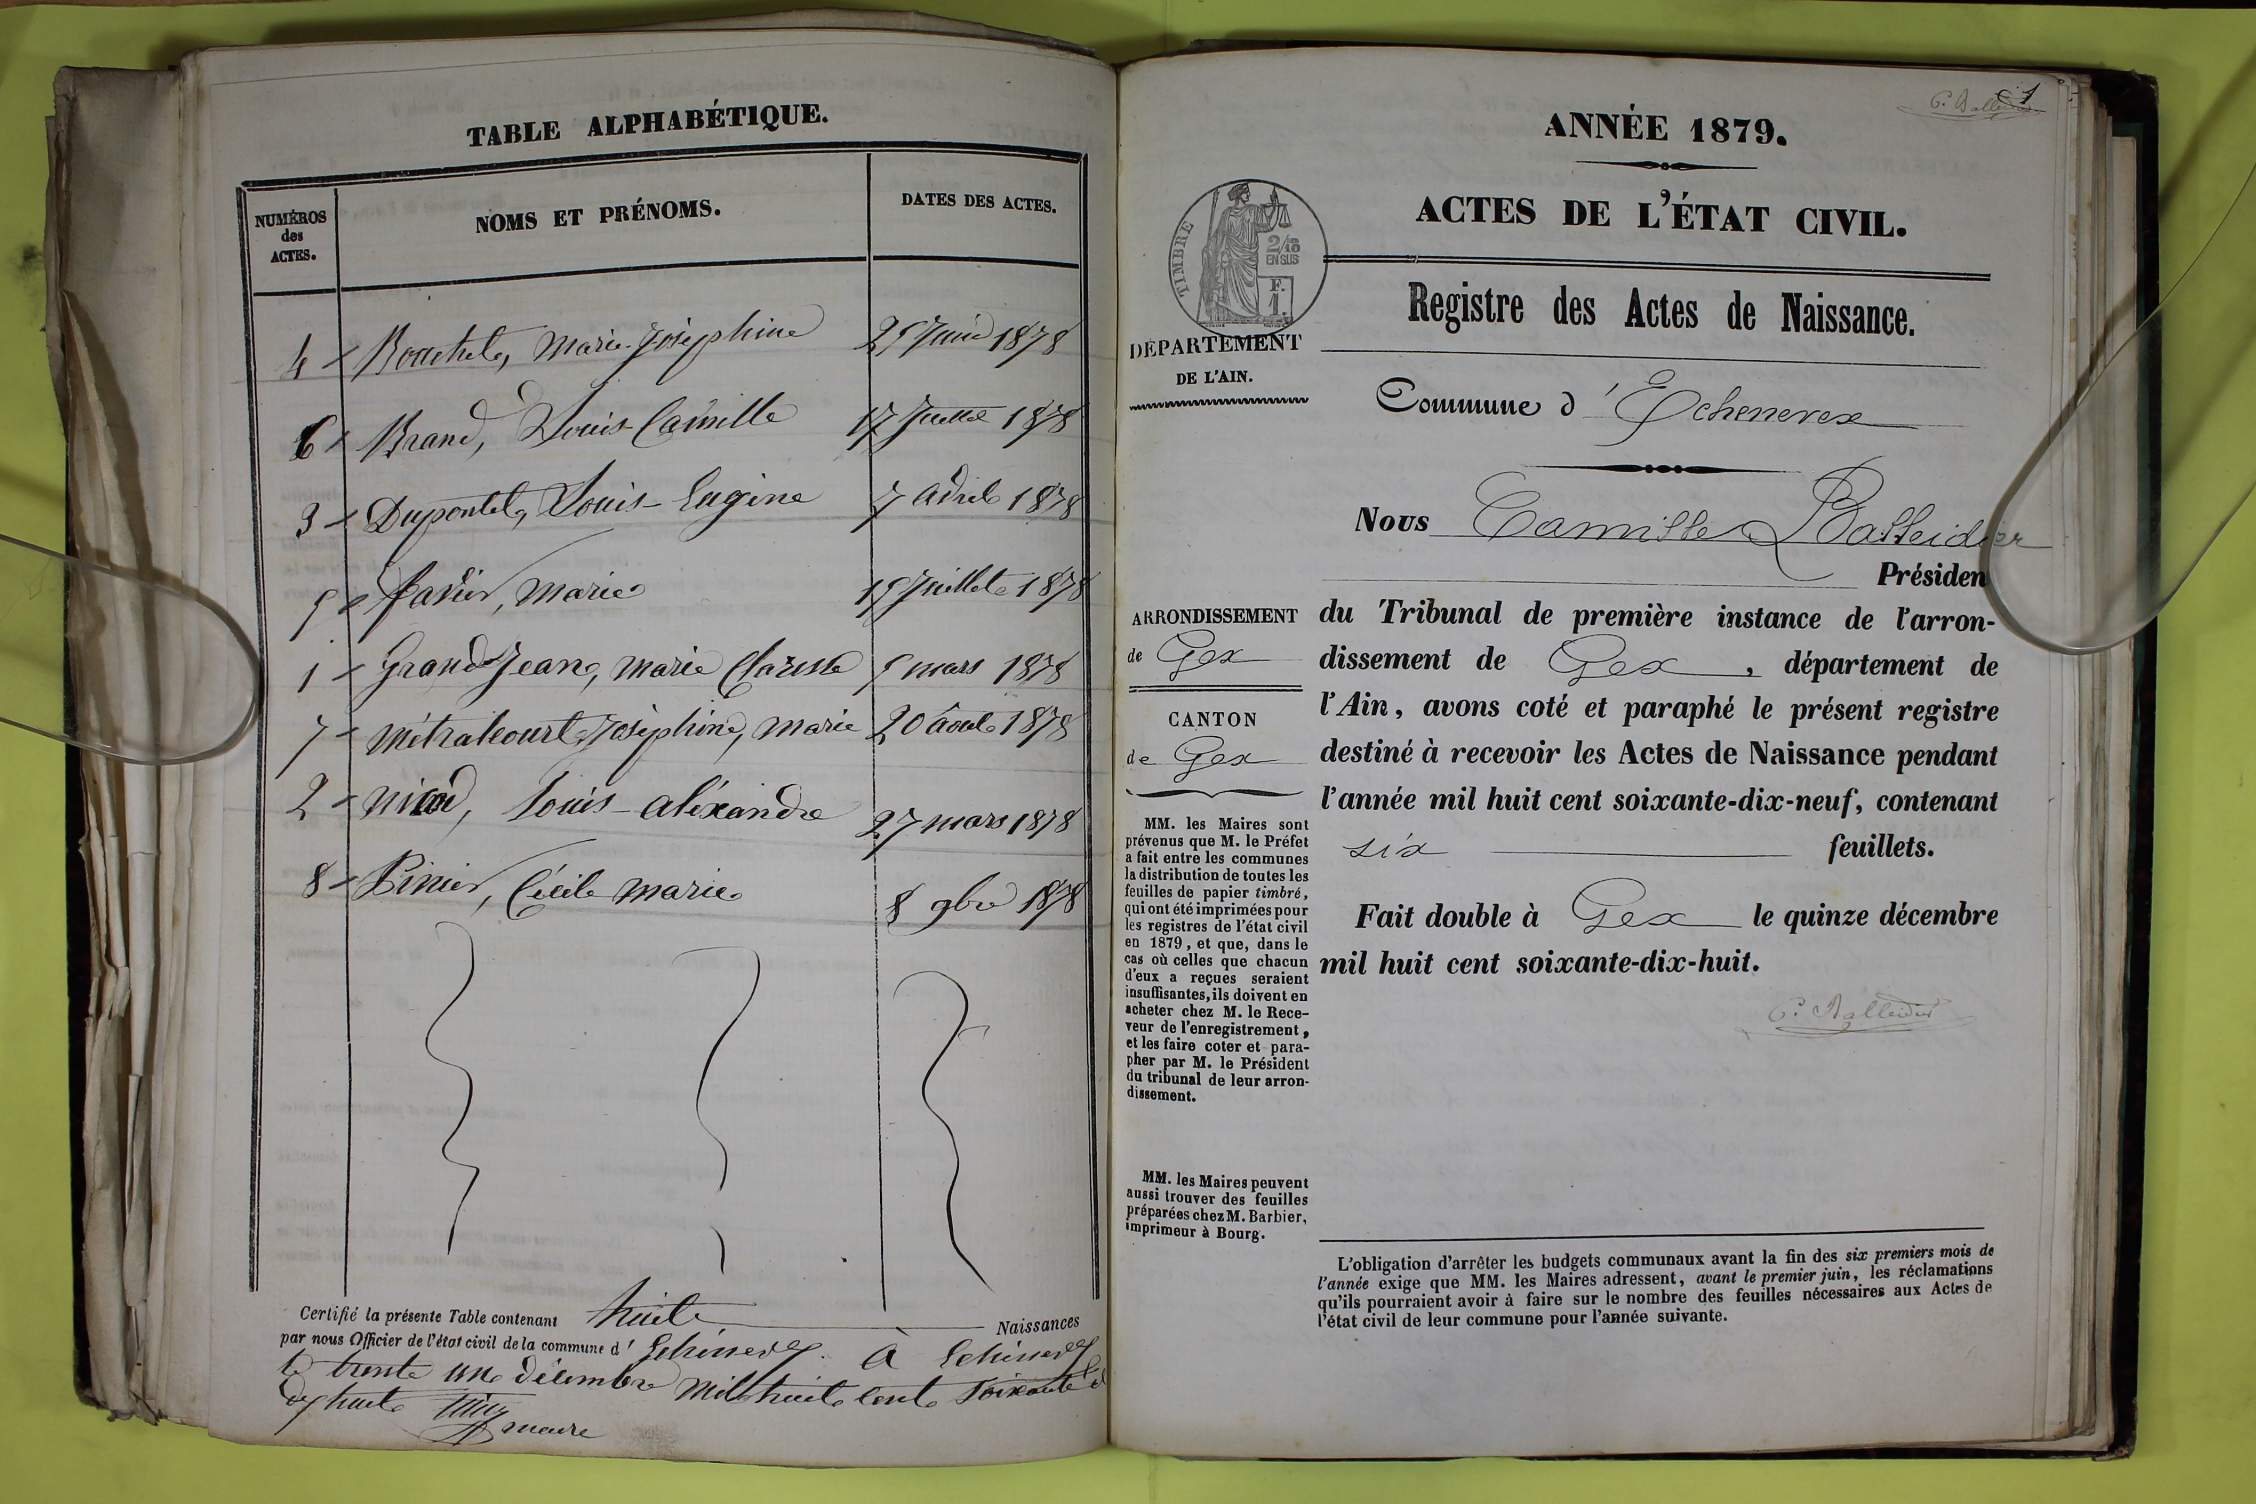 TABLE ALPHABÉTIQUE.
NUMÉROS
des
ACTES.
NOMS ET PRÉNOMS.
DATES DES ACTES.
4 Bouchet, Marie Joséphine 25 Juin 1878
6 Brand, Louis Camille 17 Juillet 1878
3 Dupontet, Louis-Eugène 7 avril 1878
5 Favier, Marie 15 Juillet 1878
1 GrandJean, Marie Clarisse 5 mars 1878
7 Métralcourt, Joséphine, Marie 20 août 1878
2 nicod, Louis-aléxandre 27 mars 1878
8 Pinier, Cécile Marie 8 9bre 1878
Certifié la présente Table contenant huit Naissances
par nous Officier de l'état civil de la commune d'Echenevex. A Echenevex
le trente un décembre mil huit cent soixante
dix huit
maire
C. Balleidier 1
ANNÉE 1879.
ACTES DE L'ÉTAT CIVIL.
Registre des Actes de Naissance.
TIMBRE
2/10
EN SUS
F.
1.
DÉPARTEMENT
DE L'AIN.
Commune d'Echenevex
Nous Camille Balleidier
Présiden
ARRONDISSEMENT
de Gex
CANTON
de Gex
du Tribunal de première instance de l'arron-
dissement de Gex, département de
l'Ain, avons coté et paraphé le présent registre
destiné à recevoir les Actes de Naissance pendant
l'année mil huit cent soixante-dix-neuf, contenant
six feuillets.
Fait double à Gex le quinze décembre
mil huit cent soixante-dix-huit.
C. Balleidier
MM. les Maires sont
prévenus que M. le Préfet
a fait entre les communes
la distribution de toutes les
feuilles de papier timbré,
qui ont été imprimées pour
les registres de l'état civil
en 1879, et que, dans le
cas où celles que chacun
d'eux a reçues seraient
insuffisantes, ils doivent en
acheter chez M. le Rece-
veur de l'enregistrement,
et les faire coter et para-
pher par M. le Président
du tribunal de leur arron-
dissement.
MM. les Maires peuvent
aussi trouver des feuilles
préparées chez M. Barbier,
imprimeur à Bourg.
L'obligation d'arrêter les budgets communaux avant la fin des six premiers mois de
l'année exige que MM. les Maires adressent, avant le premier juin, les réclamations
qu'ils pourraient avoir à faire sur le nombre des feuilles nécessaires aux Actes de
l'état civil de leur commune pour l'année suivante.